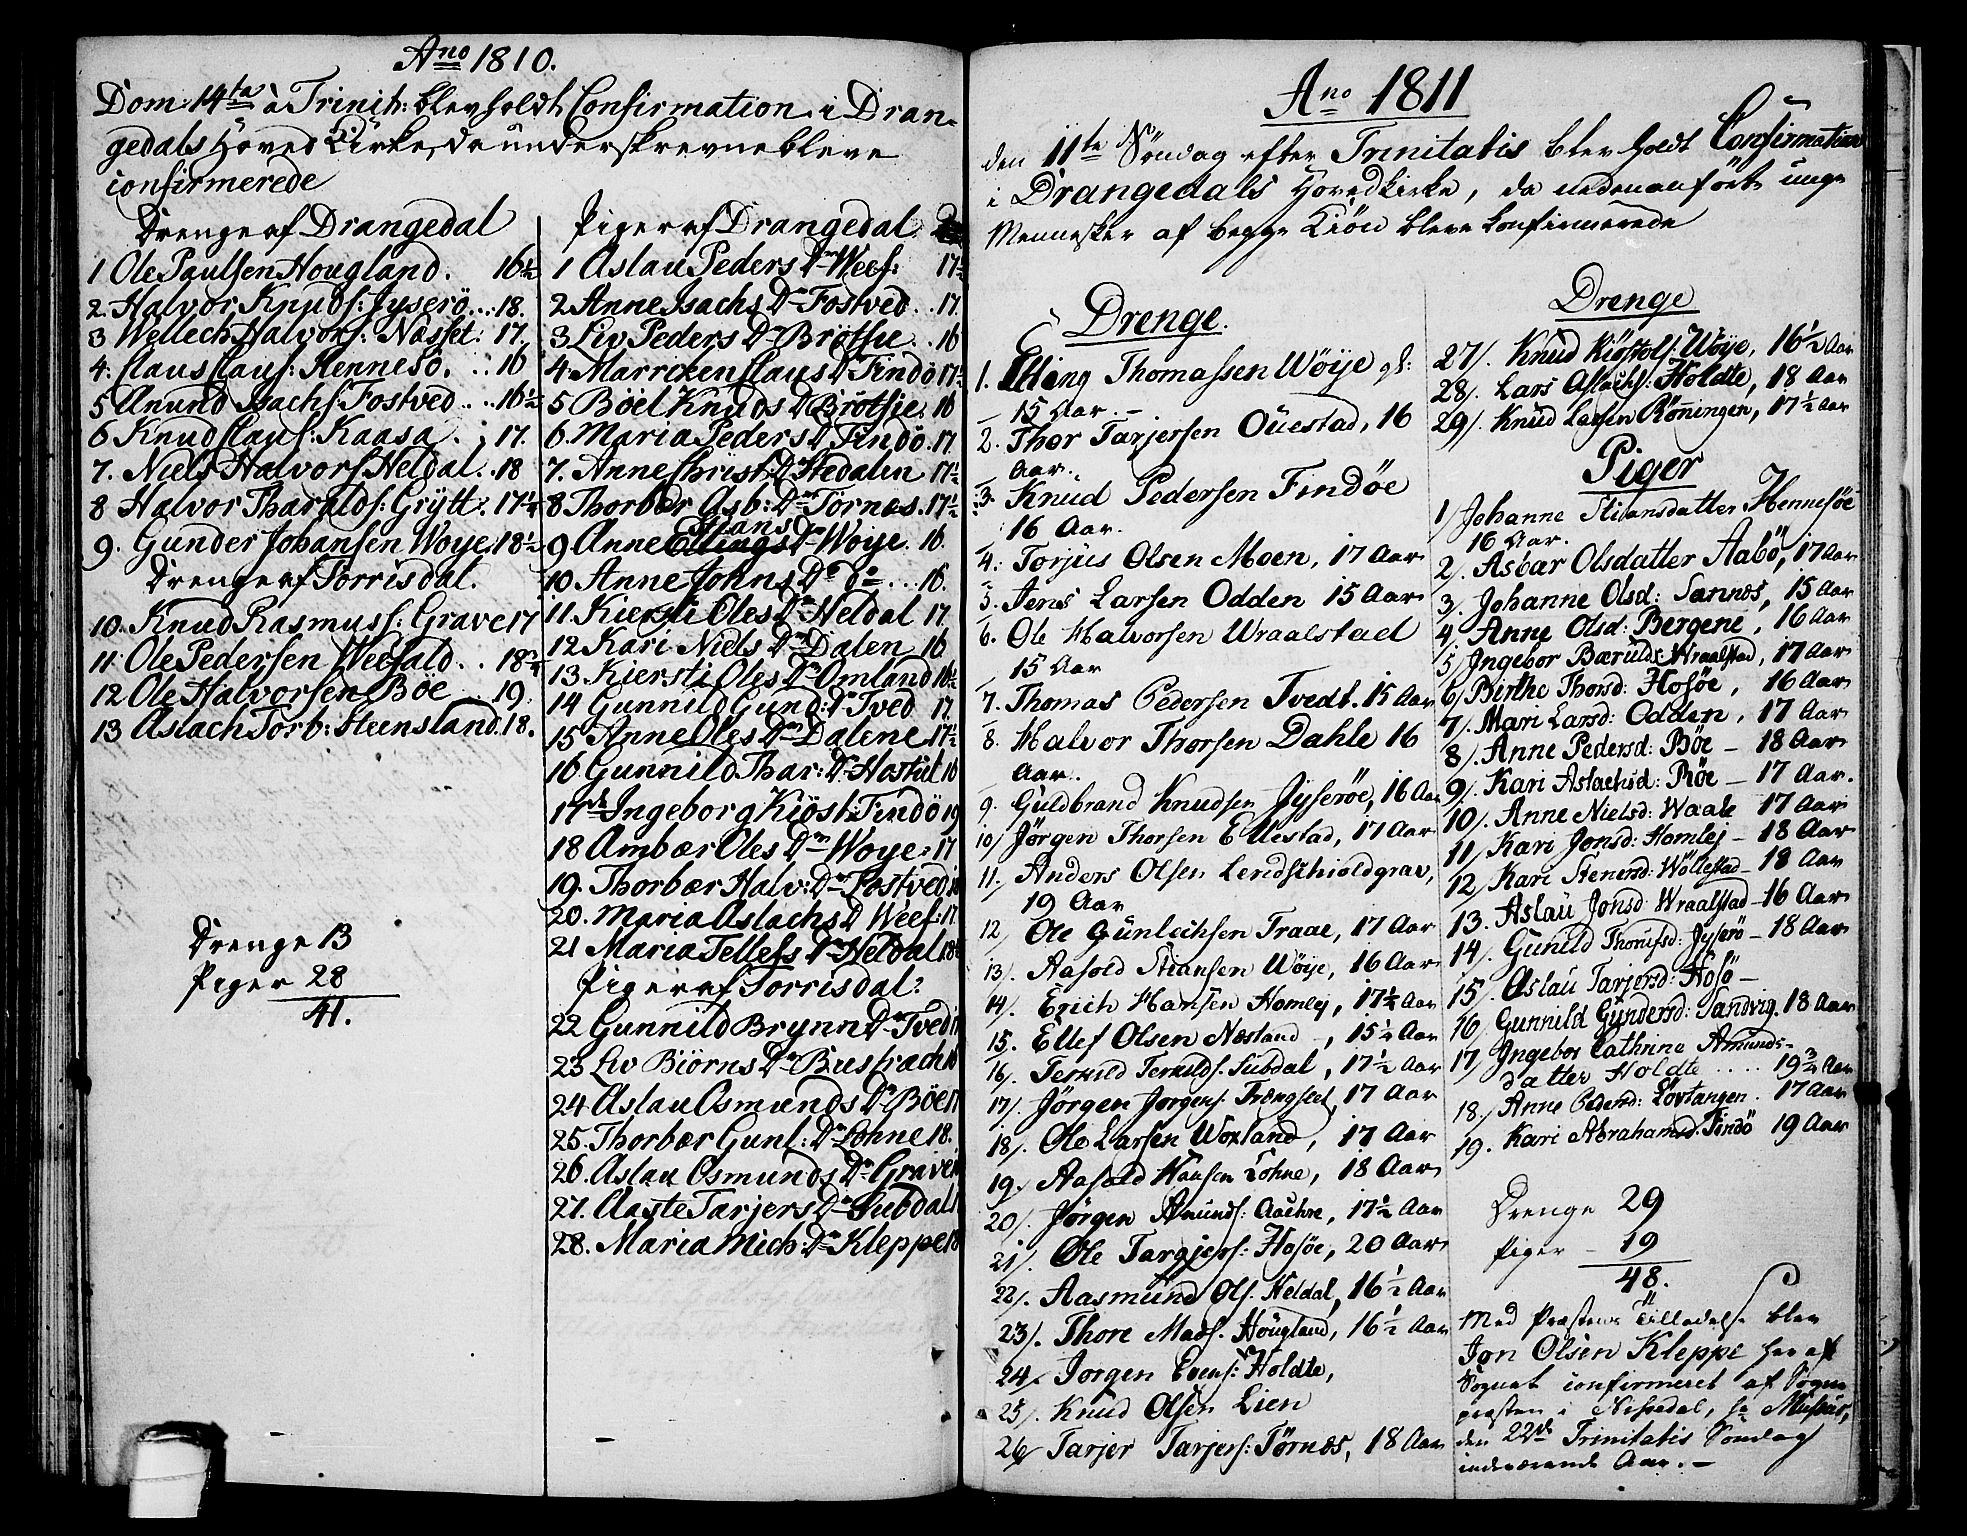 Ano 1810.
Dom: 14ta à Trinit: blev holdt Confirmation i Dran-
gedals Hoved Kirke, da underskrevne bleve
confirmerede
Drenge af Drangedal
1 Ole Paulsen Hougland. 16½
2. Halvor Knuds: Jyserö... 18.
3 Wellech Halvors: Næsset: 17.
4. Claus Claus: Hennesö. .. 16
5 Anund Isachs: Fostved ... 16½
6 Knud Claus: Kaasa . ; 17.
7. Niels Halvors: Heldal.. 18
8 Halvor Tharalds: Grÿtt: 17¼
9. Gunder Johansen Woÿe. 18½
Drenge af Torrisdal.
10. Knud Rasmuss: Grave 17
11. Ole Pedersen Weefald .. 18¾
12 Ole Halvorsen Böe .. 19.
13 Aslach Torb: Steensland. 18.
Drenge 13
Piger 28
41.
Piger af Drangedal
1 Aslau Peders Dr Weef: 17½
2 Anne Isachs Dr Fostved.. 17.
3 Liv Peders Dr Brötsie.. 16
4. Marrcken Claus Dr Findö 17½
5 Böel Knuds Dr Brötsje. 16
6. Maria Peders Dr Findö. 17
7. Anne Christ: Dr Stedalen 17½
8 Thorbær Asb: Dr Törnes. 17½
Stians
9 Anne Ellings Dr Woÿe. 16.
10 Anne Johns Dr do... 16.
11. Kiersti Oles Dr Heldal 17.
12 Kari Niels Dr Dalen 16
13 Kiersti Oles Dr Omland 16½
14 Gunnild Gund: Dr Tved 17.
15 Anne Oles Dr Dalene 17½
16 Gunnild Thar: Dr Hostul 16
17 Ingeborg Kiöst: Findö 19
18 Ambær Oles Dr Woÿe: 17
19. Thorbær Halv: Dr Fostved
20. Maria Aslachs Dr Weef: 17.
21 Maria Tellefs Dr Heldal 18
Piger af Torrisdal:
22 Gunnild Brynn Dr Tved
23 Liv Biörns Dr Bustrach
24 Aslau Osmunds Dr Böe 17
25. Thorbær Gunl: Dr Lohne 18.
26. Aslau Osmunds Dr Grave
27. Aaste Tarjers Dr Subdal
28. Maria Mich: Dr Kleppe 18
Ano 1811
den 11te Söndag efter Trinitatis blev holdt Confirmation
i Drangedals Hovedkirke, da nedenanförte unge
Mennesker af begge Kiön bleve Confirmerede
Drenge.
1. Elling Thomassen Wöÿe gl:
15 Aar. -
2. Thor Tarjersen Ouestad, 16
Aar.
3. Knud Pedersen Findöe
16 Aar.
4. Torjus Olsen Moen, 17 Aar
5. Jens Larsen Odden 15 Aar
6. Ole Halvorsen Wraalstad
15 Aar
7. Thomas Pedersen Tvedt. 15 Aar
8. Halvor Thorsen Dahle 16
Aar.
9. Guldbrand Knudsen Jyseröe, 16 Aar
10/ Jörgen Thorsen Ellestad, 17 Aar
11. Anders Olsen Lendschioldgrav,
19 Aar
12/ Ole Gunleichsen Traae, 17 Aar
13/. Aasold Stiansen Wöÿe, 16 Aar
14/. Erich Hansen Homlej, 17½ Aar
15. Ellef Olsen Næsland -, 15½ Aar
16/. Terkild Terkilds: Subdal, 17½ Aar
17/. Jörgen Jörgens: Trængsel, 17 Aar
18/. Ole Larsen Woxland, 17 Aar
19/. Aasold Hansen Lohne, 18 Aar
20/. Jörgen Amunds: Aachre, 17½ Aar
21/. Ole Targjers: Hosöe, 20 Aar
22/. Aasmund Ols: Heldal, 16½ Aar
23/. Thore Mads: Hougland, 16½ Aar
24/. Jorgen Evens: Holdte,
25/. Knud Olsen Lien
26/ Tarjer Tarjers: Törnæs, 18 Aar
Drenge
27/. Knud Kiöstols: Wöÿe, 16½ Aar
28/. Lars Aslachs: Holdte, 18 Aar
29/. Knud Larsen Röningen, 17½ Aar
Piger
1/ Johanne Stiansdatter Hennesöe
16 Aar.
2/. Asbær Olsdatter Aabö, 17 Aar
3/. Johanne Olsd: Sannes, 15 Aar
4/. Anne Olsd: Bergene, 16 Aar
5/ Ingebor Bærulds: Wraalstad, 17 Aar
6/ Birthe Thorsd: Hosöe, 16 Aar
7/. Mari Larsd: Odden, 17 Aar
8/. Anne Pedersd: Böe - 18 Aar
9/. Kari Aslachsd: Böe - 17 Aar.
10/. Anne Nielsd: Waale 17 Aar
11/ Kari Jonsd: Homlej - 18 Aar
12/ Kari Stenersd: Wöllestad - 18 Aar
13. Aslau Jonsd: Wraalstad - 16 Aar
14/. Gunild Thorufsd: Jyserö - 18 Aar
15/. Aslau Tarjersd: Hosö -
16/ Gunnild Gundersd: Sandvig. 18 Aar
17/ Ingebor Cathrine Amunds-
datter Holdte .... 19¾ Aar
18/. Anne Pedersd: Lövtangen. 17 Aar
19. Kari Abrahamsd: Findö 19 Aar
Drenge 29
Piger - 19
48.
Med Præstens Tilladelse blev
Jon Olsen Kleppe her af
Sognet confirmeret af Sogne
præsten i Nissedal, Hr
den 22de Trinitatis Söndag
indeværende Aar. -